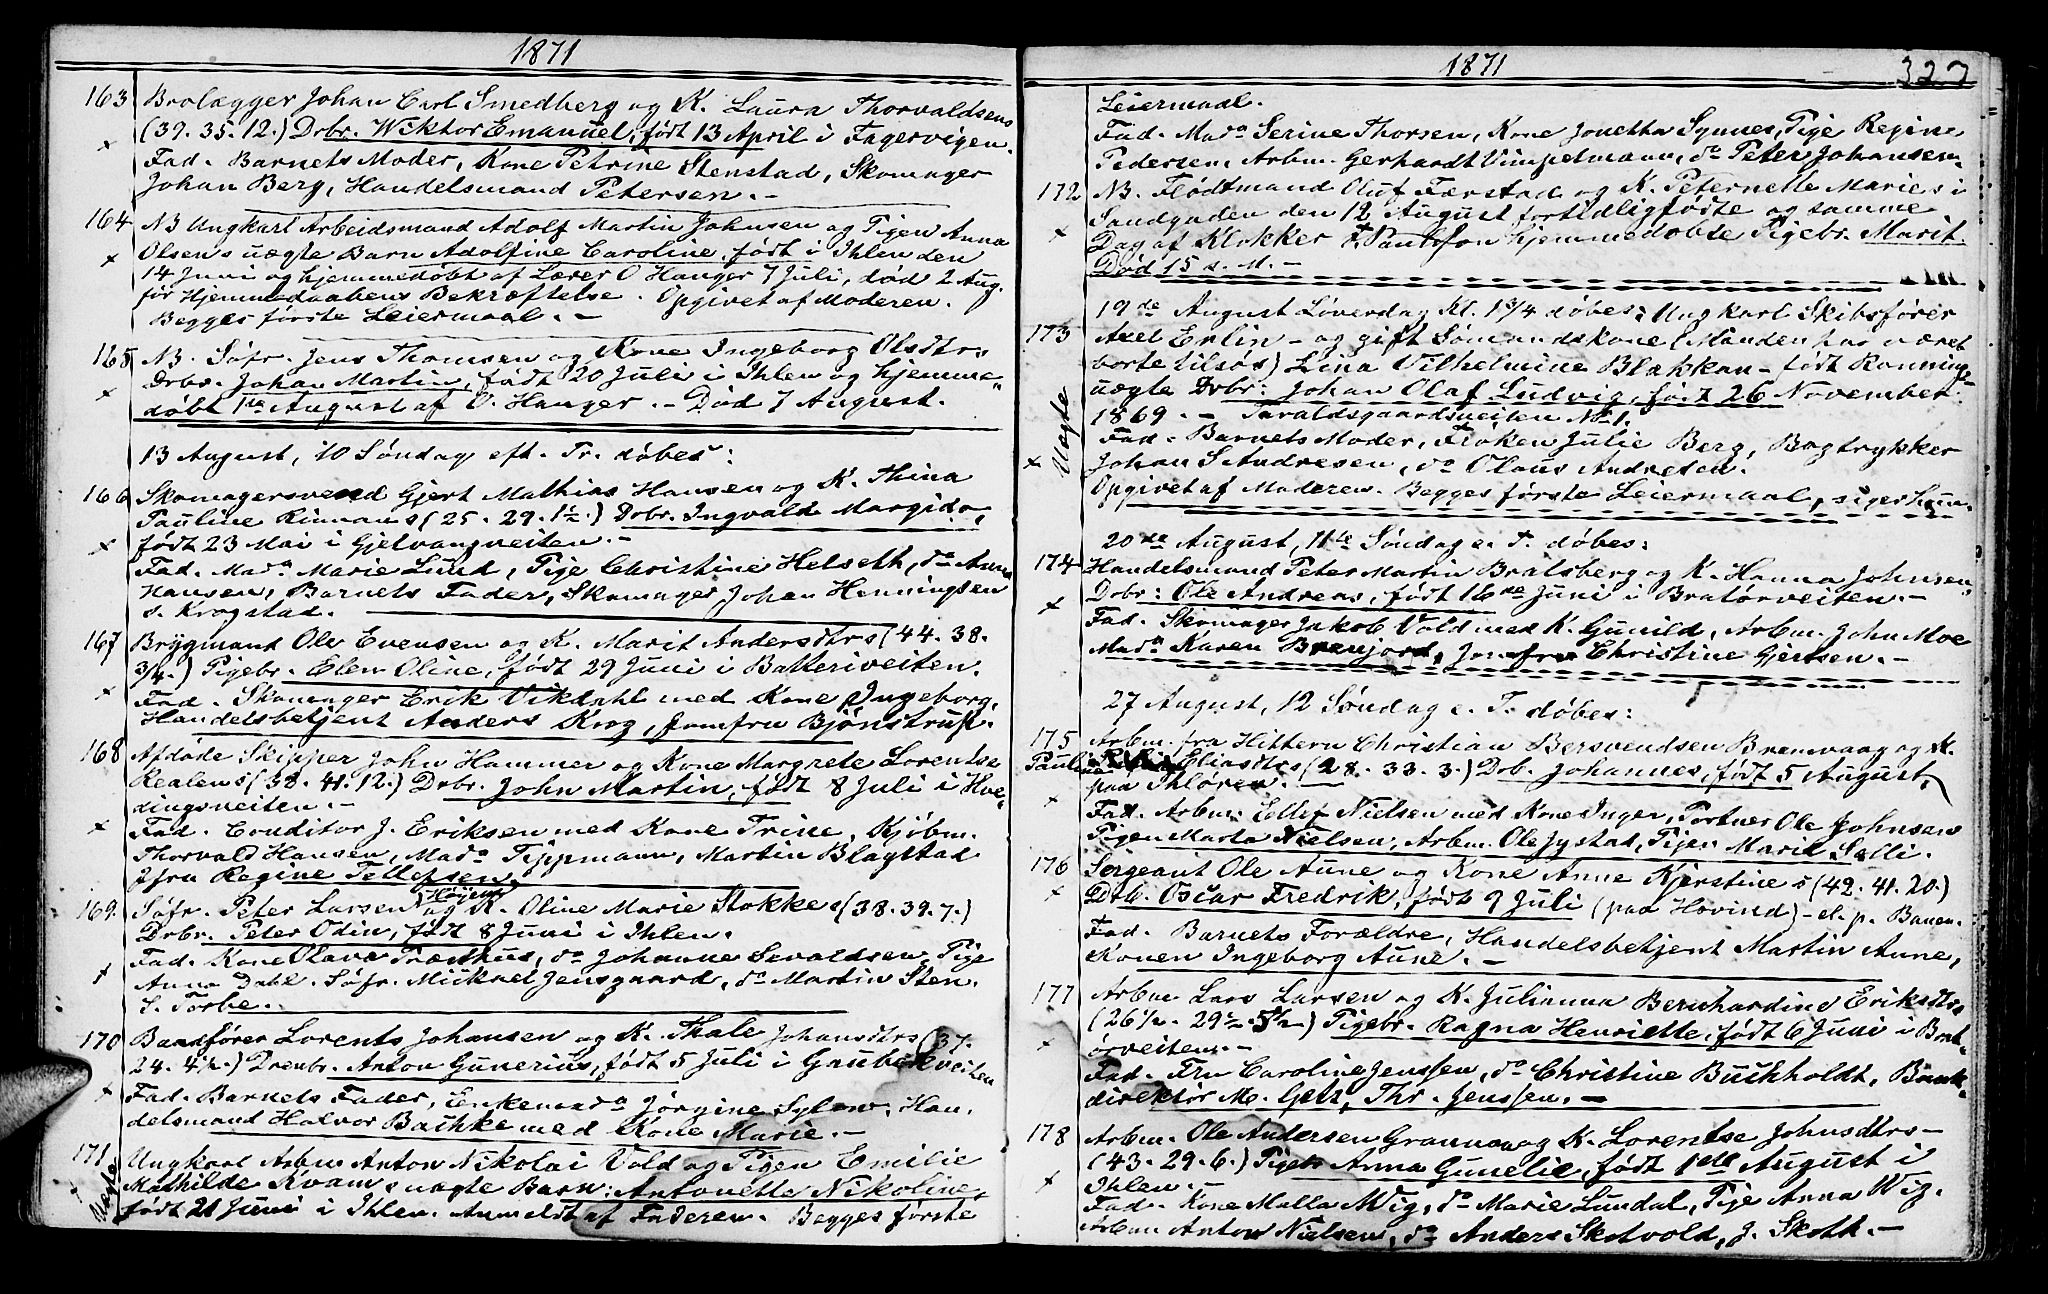 1871
163 Brolægger Johan Carl Smedberg og K. Laura Thorvaldsens
(39. 35. 12.) Drbr. Wiktor Emanuel, født 13 April i Fagervigen.
× Fad. Barnets Moder, Kone Petrine Stenstad, Skomager
Johan Berg, Handelsmand Petersen. –
164 NB Ungkarl Arbeidsmand Adolf Martin Johnsen og Pigen Anna
Olsens uægte Barn Adolfine Caroline, født i Ihlen den
× 14 Juni og hjemmedøbt af Lærer O Hanger 7 Juli, død 2 Aug.
før Hjemmedaabens Bekræftelse. Opgivet af Moderen.
Begges første Leiermaal. –
165 NB. Søfr. Jens Thomsen og Kone Ingeborg Olsdtrs
Drbr. Johan Martin, født 20 Juli i Ihlen og hjemme„
× døbt 1ste August af O. Hanger. – Død 7 August.
13 August, 10 Søndag eft. Tr. døbes:
166 Skomagersvend Gjert Mathias Hansen og K. Thina
Pauline Rinnans (25. 29. 1½.) Drbr. Ingvald Margido,
× født 23 Mai i Gjelvangveiten. –
Fad. Mada Marie Lund, Pige Christine Helseth, do Anna
Hansen, Barnets Fader, Skomager Johan Henningsen
s. Krogstad.
167 Brygmand Ole Evensen og K. Marit Andersdtrs (44. 38.
¾.) Pigebr. Elen Oline, født 29 Juni i Batteriveiten.
× Fad. Skomager Erik Vikdahl med Kone Ingeborg,
Handelsbetjent Anders Krog, jomfru Bjønstrup.
168 Afdøde Skipper John Hammer og Kone Margrete Lorentse
Realens (38. 41. 12.) Drbr. John Martin, født 8 Juli i Hve„
dingsveiten. –
× Fad. Conditor J. Eriksen med Kone Trine, Kjøbm.
Thorvald Hansen, Mada Tippmann, Martin Blagstad
Jfru Regine Tellefsen.
169. Søfr. Peter Larsen Høiem og K. Oline Marie Stokkes (38. 39. 7.)
Drbr. Peter Odin, født 8 Juni i Ihlen.
Fad. Kone Olava Træthus, do Johanne Sevaldsen, Pige
× Anna Dahl. Søfr. Mickael Jensgaard, do Martin Sten.
S. Forbe.
170 Baadfører Lorents Johansen og K. Thale Johansdtrs (37.
24. 4½.) Drenbr. Anton Gunerius, født 5 Juli i Grubbekveiten
× Fad. Barnets Fader, Enkemada Jørgine Sylow, Han,
delsmand Halvor Bachke med Kone Marie. –
171 Ungkarl Arbm Anton Nikolai Vold og Pigen Emilie
× Uægte Mathilde Kvams uægte Barn: Antonette Nikoline,
født 21 Juni i Ihlen. Anmeldt af Faderen. Begges første
1871 327
Leiermaal.
Fad. Mada Serine Thorsen, Kone Jonetta Synnes, Pige Regine
Pedersen, Arbm. Gerhardt Vimpelmann, do Peter Johansen.
172 NB. Flødtmand Oluf Færstad og K. Peternelle Maries i
Sandgaden den 12 August fortidligfødte og samme
× Dag af Klokker Paulsson hjemmedøbte Pigebr. Marit.
Død 15 s. M. –
19de August Løverdag Kl. 1¾ døbes: Ungkarl Skibsfører
173 Axel Erlin – og gift Sømandskone (Manden har været
borte tilsøs) Lina Vilhelmine Blakkan – født Ronning„
uægte Drbr: Johan Olaf Ludvig, født 26 November
Uægte 1869. – Taraldsgaardsveiten No 1.
Fad. Barnets Moder, Frøken Julie Berg, Bogtrykker
× Johan S Andresen, do Olaus Andresen.
Opgivet af Moderen. Begges første Leiermaal, siger hun.
20de August, 11te Søndag e. T. døbes:
174 Handelsmand Peter Martin Bratsberg og K. Hanna Johnsens
Drbr: Ole Andreas, født 16de Juni i Bratørveiten. –
× Fad. Skomager Jakob Vold med K. Gunild, Arbm. John Moe
Mada Karen Brenjord, Jomfru Christine Gjertsen. –
27 August, 12 Søndag e. T. døbes:
175 Arbm. fra Hittern Christian Bersvendsen Brenvaag og K.
Pauline Eliasdtrs (28. 33. 3.) Drb. Johannes, født 5 August,
paa Ihløren. –
× Fad. Arbm. Ellef Nielsen med Kone Inger, Portner Ole Johnsen
Pigen Marta Nielsen, Arbm. Ole Jystad, Pigen Marit Selli.
176 Sergeant Ole Aune og Kone Anne Kjerstines (42. 41. 20.)
× Drb. Oscar Fredrik, født 9 Juli (paa Hovind) – el. p. Banen.
Fad. Barnets Forældre, Handelsbetjent Martin Aune,
Konen Ingeborg Aune. –
177 Arbm Lars Larsen og K. Julianna Bernhardine Eriksdtrs
(26½. 29½. 5½) Pigebr. Ragna Henriette, født 6 Juni i Brat„
× ørveiten. –
Fad. Fru Caroline Jenssen, do Christine Buchholdt, Bank„
direktør M. Getz, Thr. Jenssen. –
178 Arbm. Ole Andersen Grannan og K. Lorentse Johnsdtrs –
(43. 29. 6.) Pigebr Anna Gunelie, født 1ste August i
× Ihlen. –
Fad. Kone Malla Wig, do Marie Lundal, Pige Anna Wig.
Arbm Anton Nielsen, do Anders Skotvold, J. Skoth. –